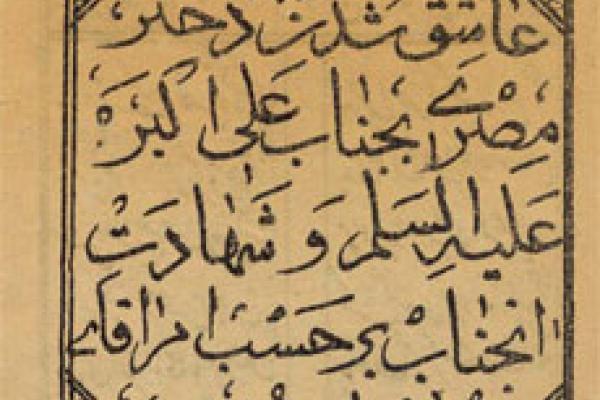 عاشق شدن دختر
مصری بجناب علی اکبر
علیه السلم و شهادت
انجناب بر حسب امر اقای